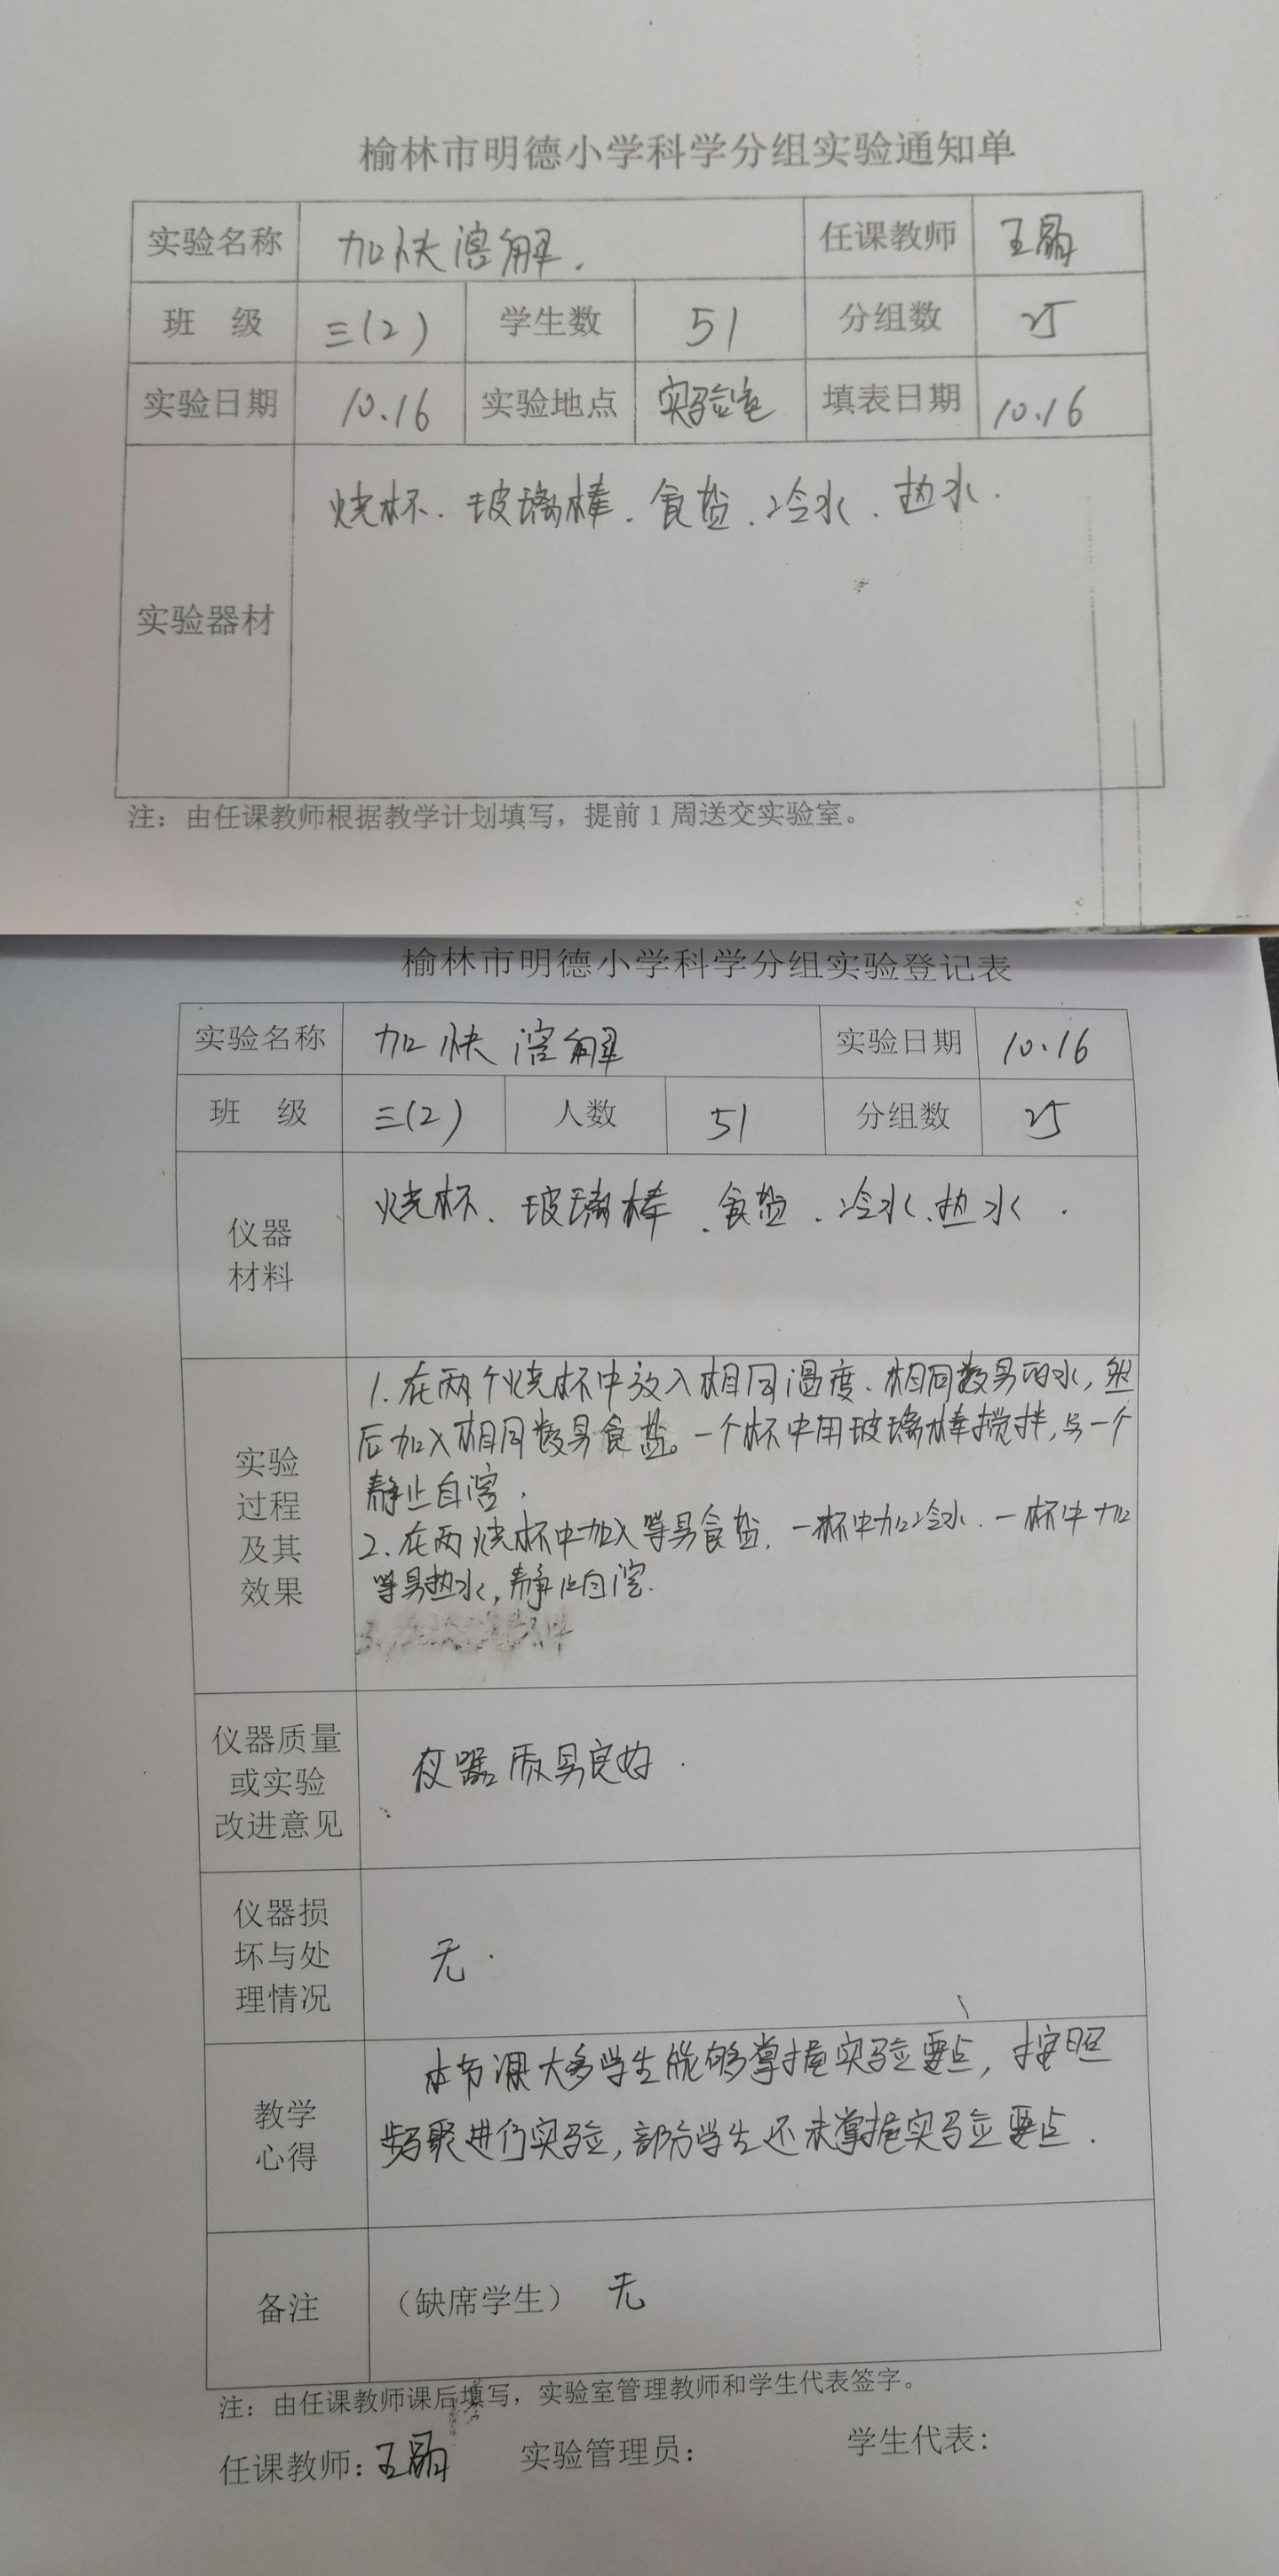 榆林市明德小学科学分组实验通知单
实验名称 加快溶解. 任课教师 王
班 级 三(2) 学生数 51 分组数 25
实验日期 10.16 实验地点 实验室 填表日期 10.16
实验器材 烧杯、玻璃棒、食盐、冷水、热水.
注：由任课教师根据教学计划填写，提前1周送交实验室。
榆林市明德小学科学分组实验登记表
实验名称 加快溶解 实验日期 10.16
班 级 三(2) 人数 51 分组数 25
仪器
材料
烧杯、玻璃棒、食盐、冷水、热水.
实验
过程
及其
效果
1.在两个烧杯中放入相同温度、相同数量的水，然
后加入相同数量食盐。一个杯中用玻璃棒搅拌，另一个
静止自溶.
2.在两烧杯中加入等量食盐，一杯中加冷水、一杯中加
等量热水，静止自溶.
仪器质量
或实验
改进意见
仪器质量良好.
仪器损
坏与处
理情况
无.
教学
心得
本节课大多学生能够掌握实验要点，按照
步骤进行实验，部分学生还未掌握实验要点.
备注 （缺席学生） 无
注：由任课教师课后填写，实验室管理教师和学生代表签字。
任课教师：王 实验管理员： 学生代表：